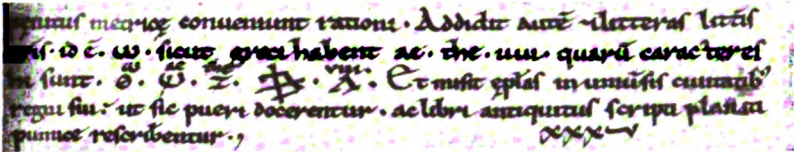 penitus metricę conueniunt rationi · Addidit autē ⁊ litteras litt̄is
nr̄is · id ē · ω · sicut greci habent ae · the · uui · quarū caracteres
hi sunt · Et misit ep̄las in uniuersis ciuitatib;
regni sui · ut sic pueri docerentur · ac libri antiquitus scripti planati
pumice rescriberentur ·,